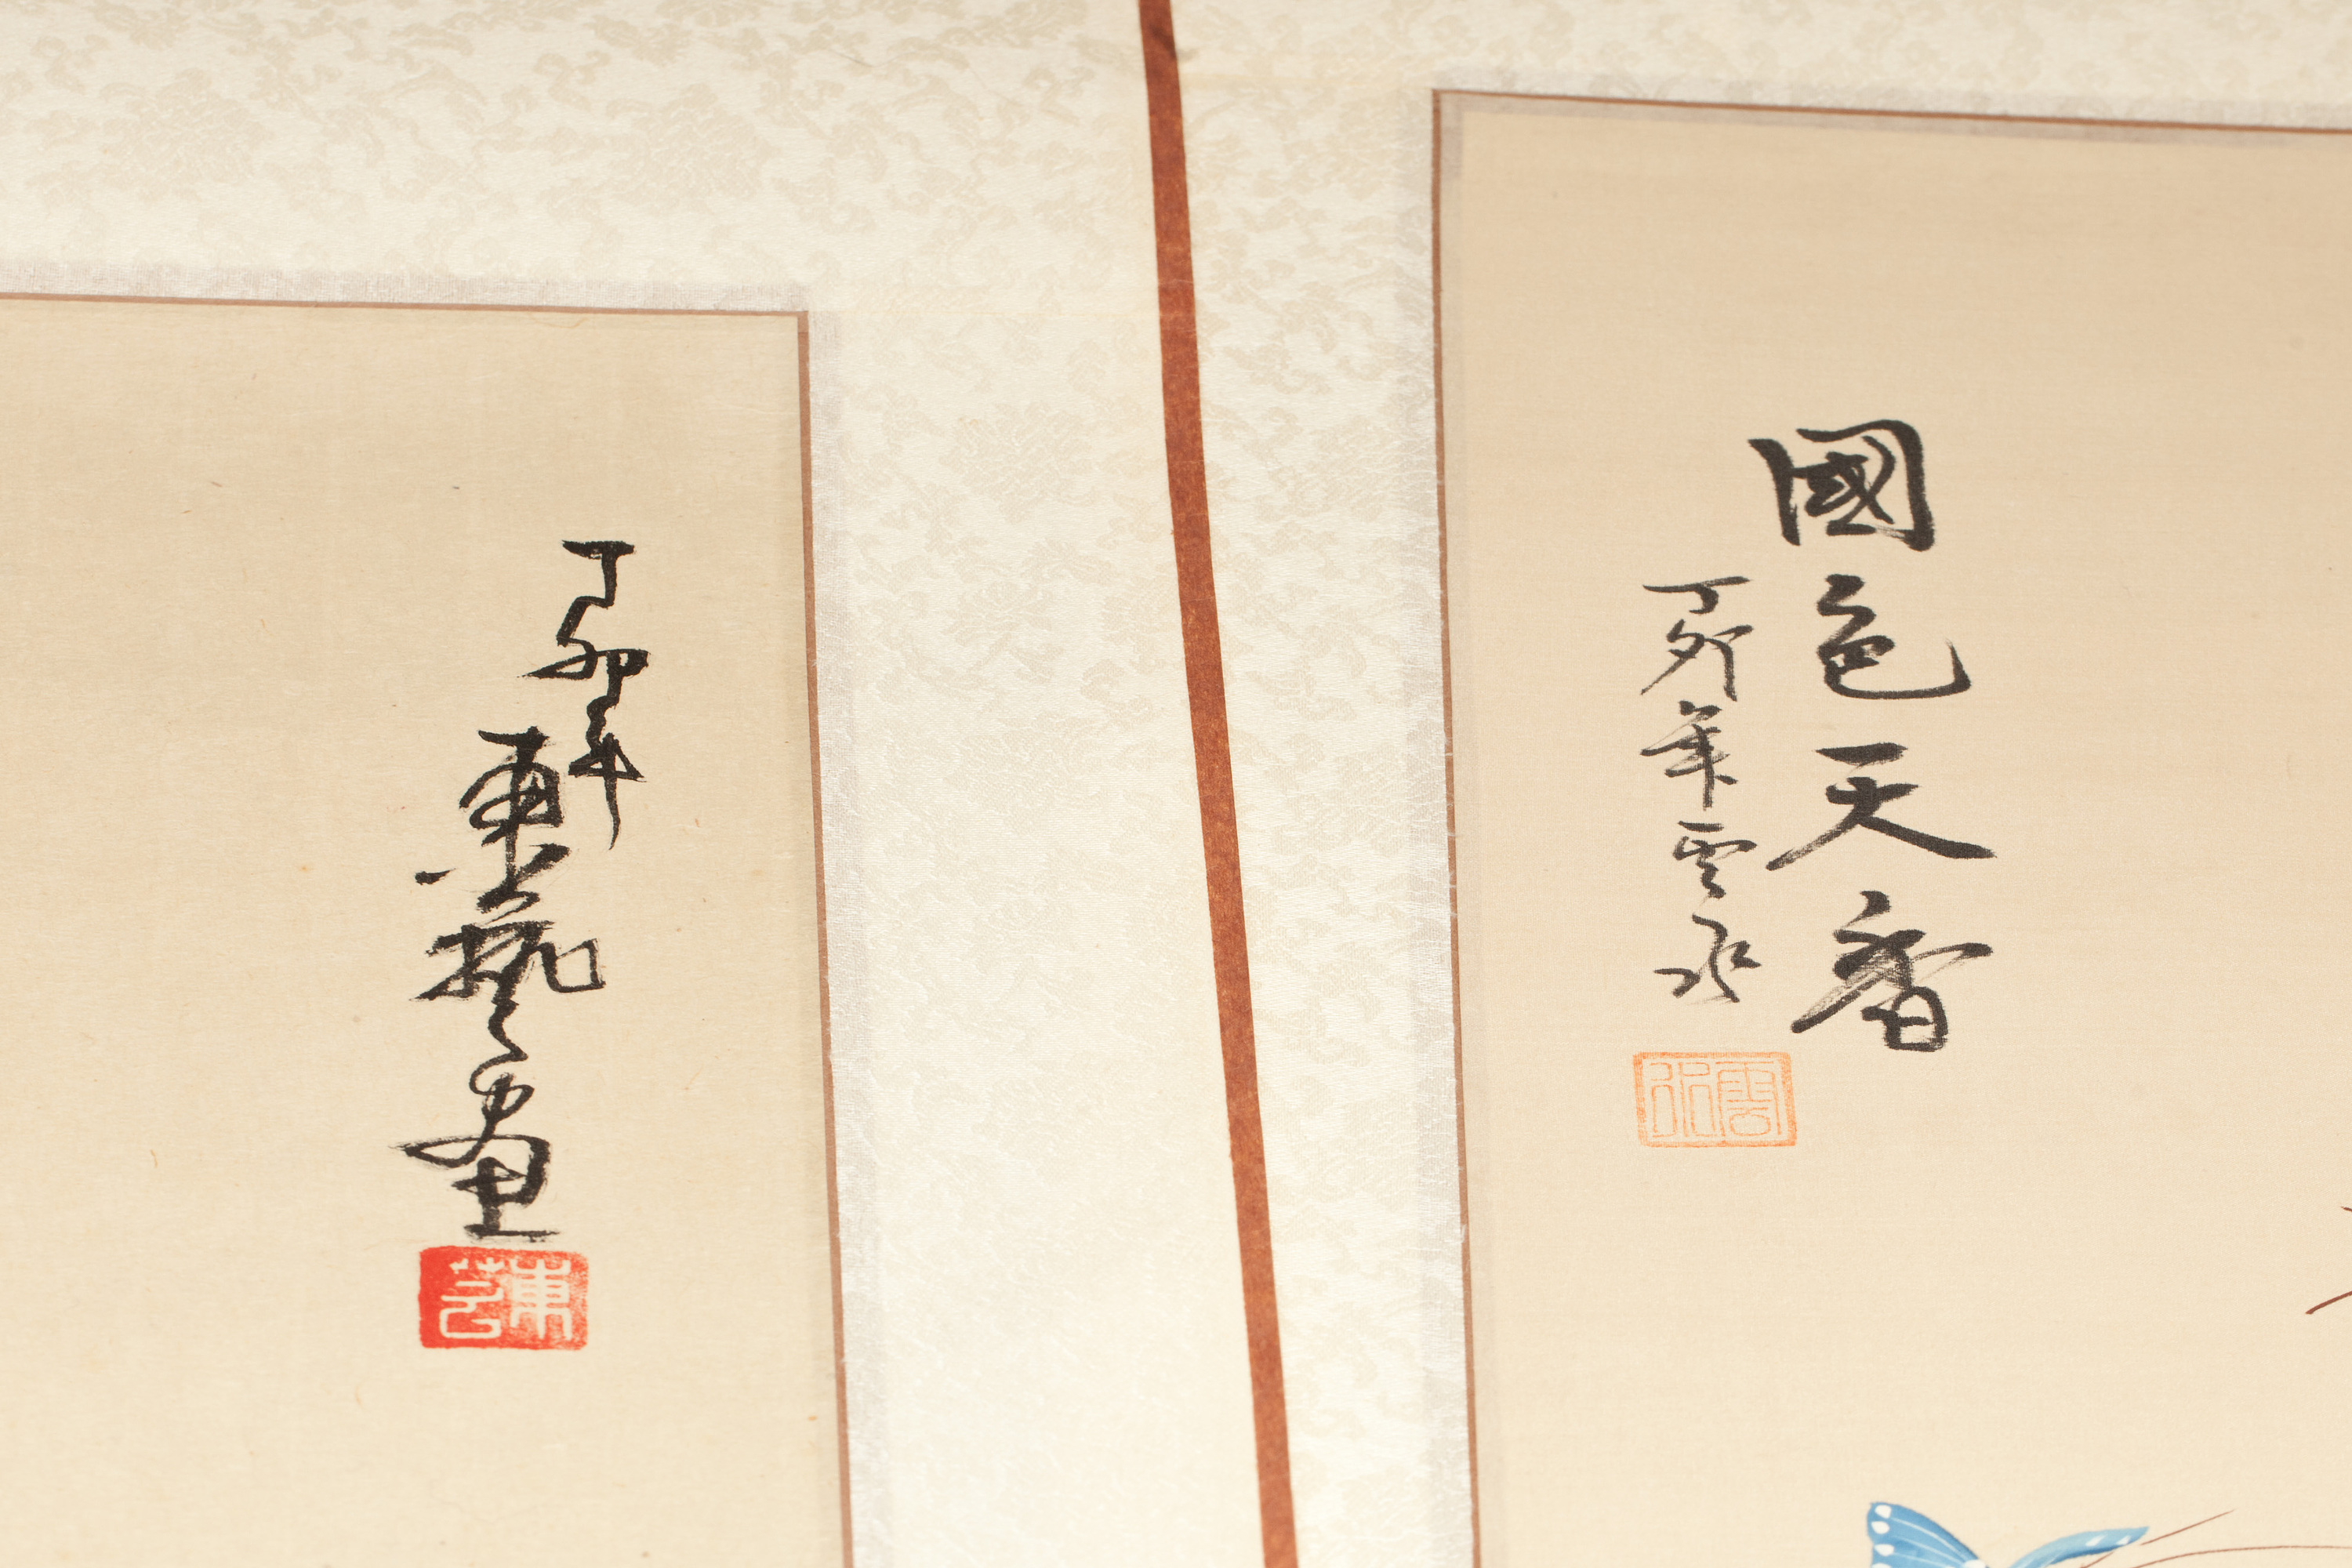 國色天香
丁卯年雲水
雲水
丁卯年
東藝畫
東芸